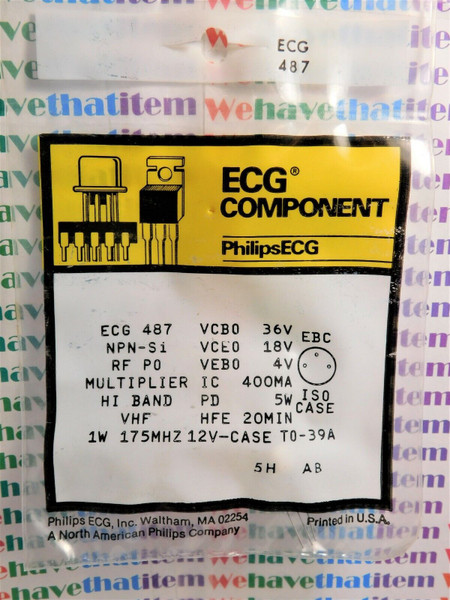 ECG
487
Wehavethatitem Wehavethatitem
ECG® COMPONENT
PhilipsECG
ECG 487 VCBO 36V
NPN-Si VCEO 18V EBC
RF PO VEBO 4V
MULTIPLIER IC 400MA
HI BAND PD 5W ISO
VHF HFE 20MIN CASE
1W 175MHZ 12V-CASE TO-39A
5H AB
Philips ECG, Inc. Waltham, MA 02254 Printed in U.S.A.
A North American Philips Company
Wehavethatitem Wehavethatitem